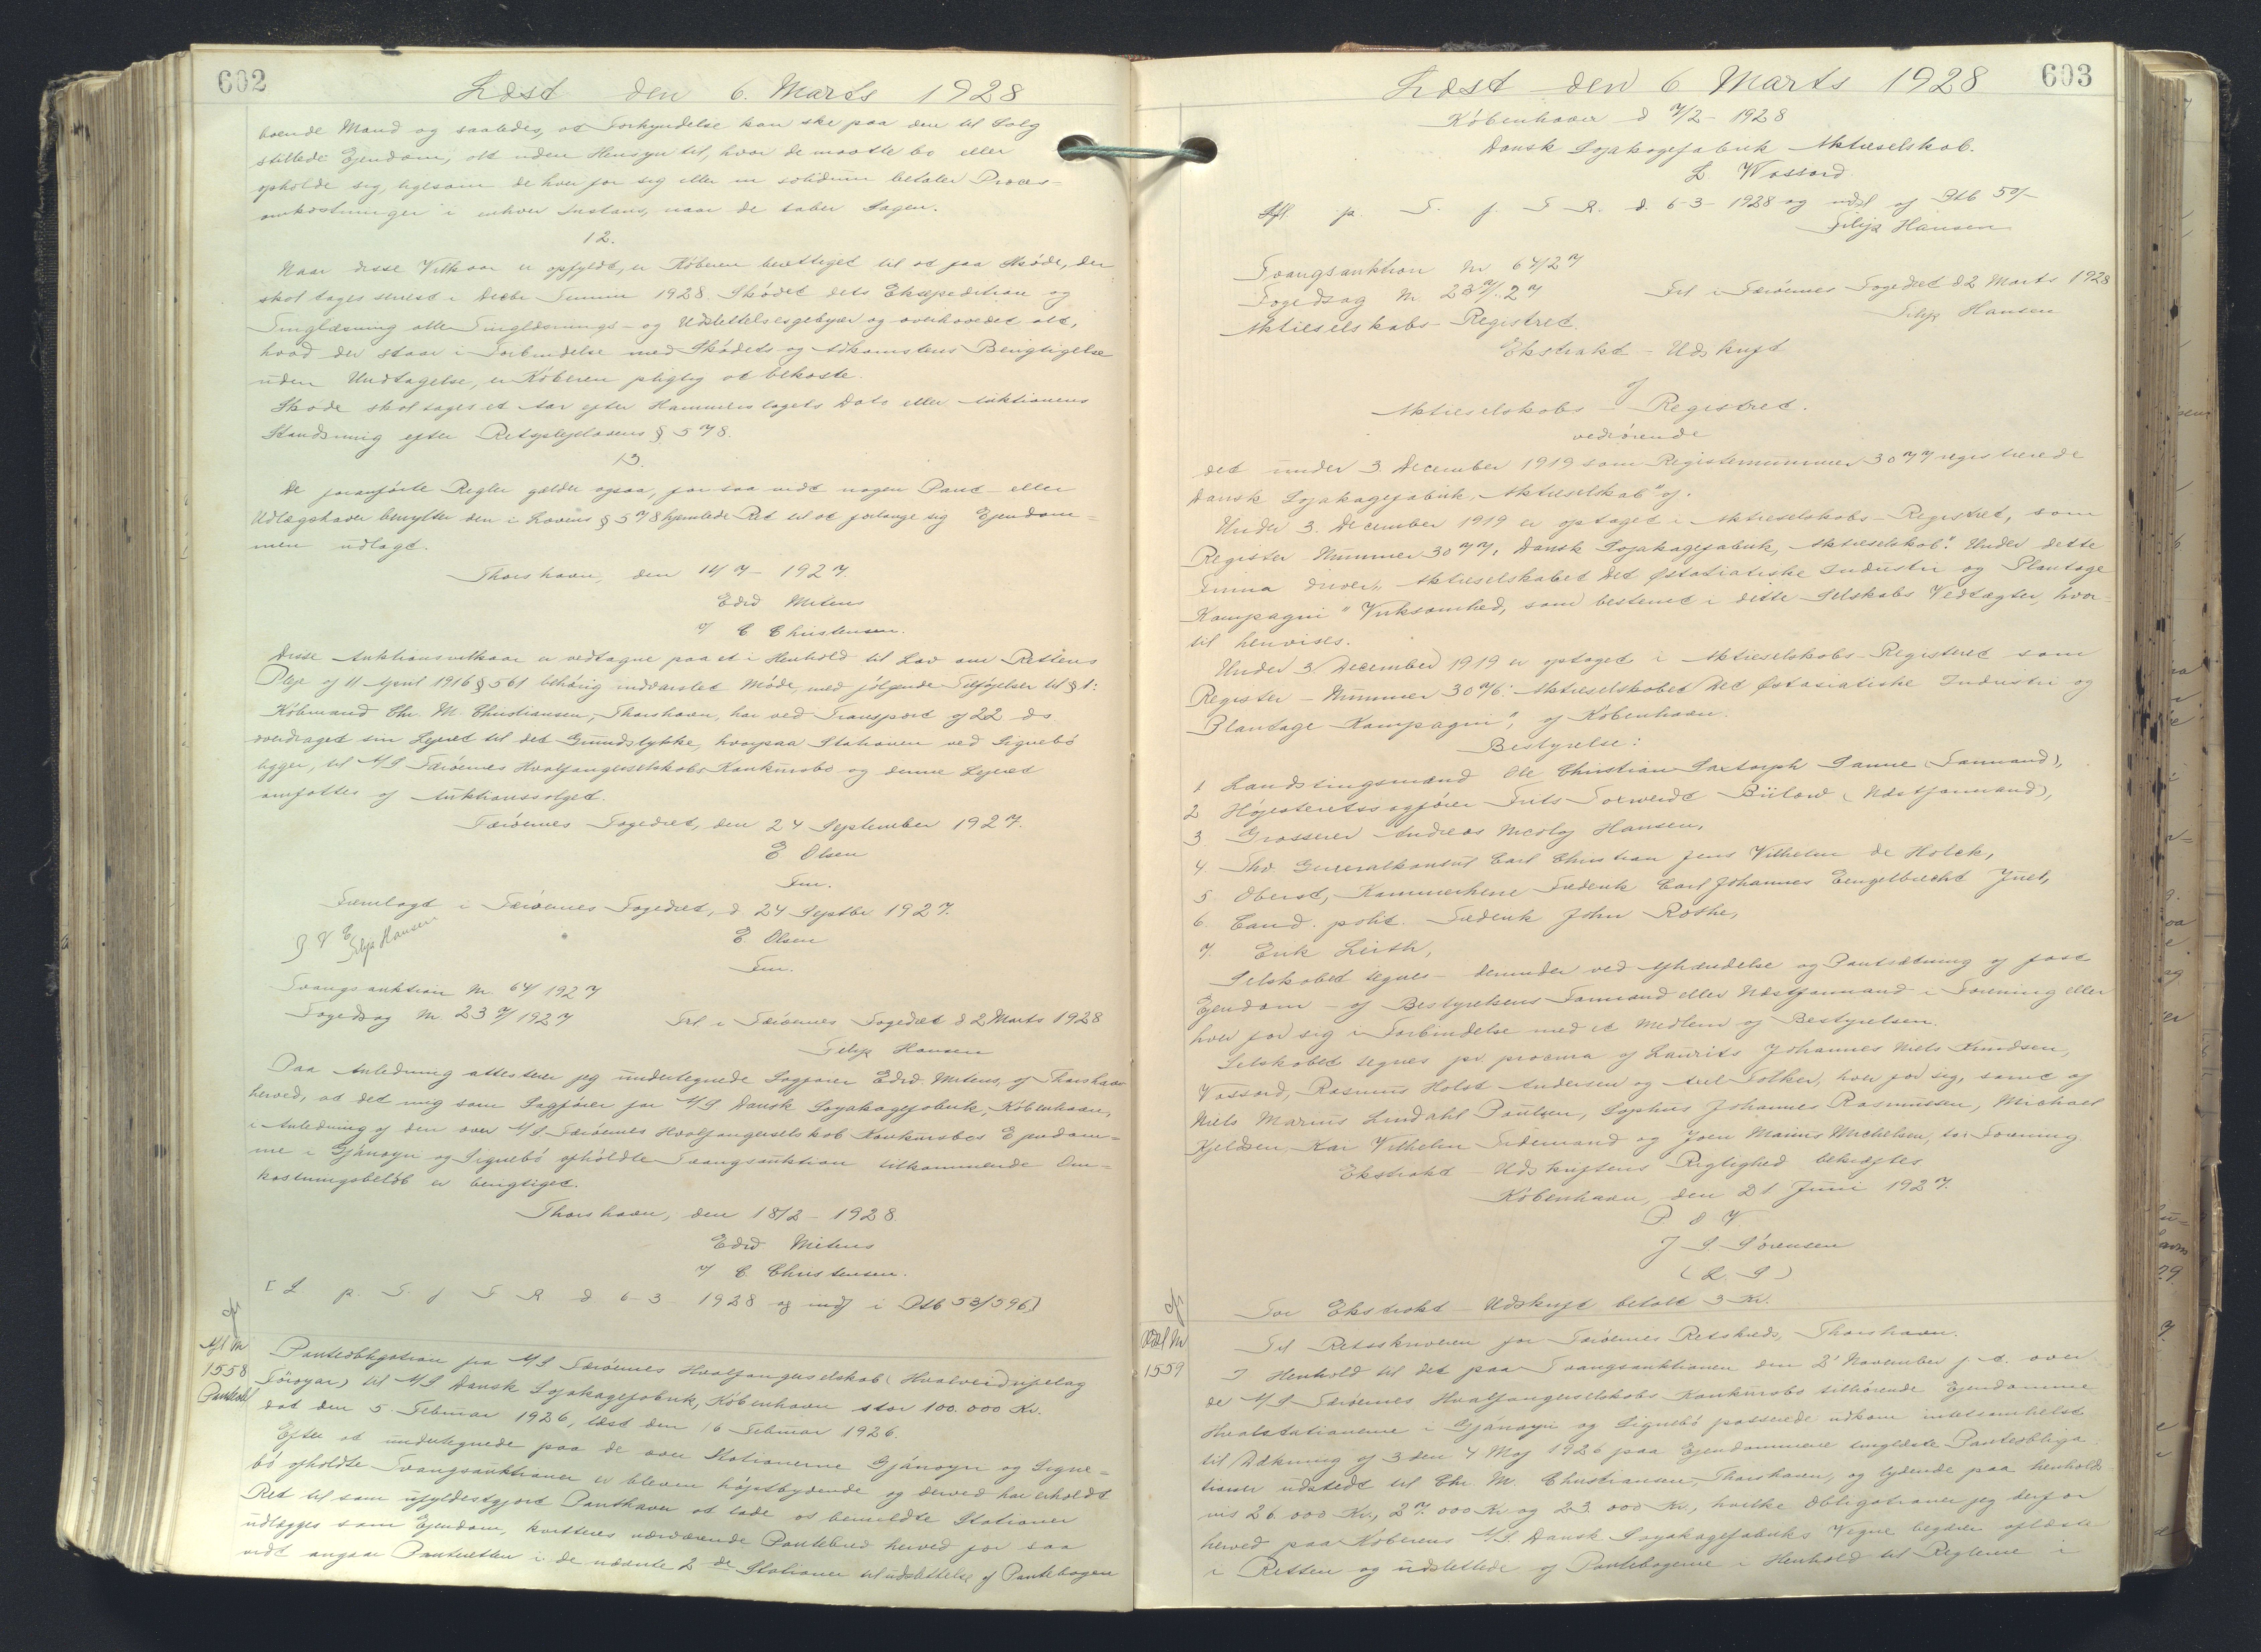 602
Læst den 6. Marts 1928
boende Mand og saaledes, at Forkyndelse kan ske paa den til Salg
stillede Ejendom, alt uden Hensyn til, hvor de maatte bo eller
opholde sig, ligesom de hver for sig eller in solidum betaler Proces-
omkostninger i enhver Instans, naar de taber Sagen.
12.
Naar disse Vilkaar er opfyldt, er Køberen berettiget til at faa Skøde, der
skal tages senest i Decbr Termin 1928. Skødet dets Ekspedition og
Tinglæsning alle Tinglæsnings- og Udslettelsesgebyrer og overhovedet alt,
hvad der staar i Forbindelse med Skødets og Adkomstens Berigtigelse
uden Undtagelse, er Køberen pligtig at bekoste.
Skøde skal tages et Aar efter Hammerslagets Dato eller Auktionens
Slutning efter Retsplejelovens § 578.
13.
De foranførte Regler gælder ogsaa, for saa vidt nogen Pant- eller
Udlægshaver benytter den i Lovens § 578 hjemlede Ret til at forlange sig Ejendom=
men udlagt.
Thorshavn, den 14/7 - 1927.
Edw Mitens
v/ C Christensen.
Disse Auktionsvilkaar er vedtagne paa et i Henhold til Lov om Rettens
Pleje af 11 April 1916 § 561 behørig indvarslet Møde, med følgende Tilføjelser til § 1:
Købmand Chr. M. Christiansen, Thorshavn, har ved Transport af 22 ds
overdraget sin Lejeret til det Grundstykke, hvorpaa Stationen ved Signebø
ligger, til A/S Færøernes Hvalfangerselskabs Konkursbo og denne Lejeret
omfattes af Auktionssalget.
Færøernes Fogedret, den 24 September 1927.
E Olsen
Fm.
Fremlagt i Færøernes Fogedret, d 24 Septbr 1927.
E. Olsen
Fm.
Filip Hansen
Tvangsauktion Nr. 64/1927
Fogedsag Nr. 237/1927 Frl i Færøernes Fogedret d 2 Marts 1928
Filip Hansen
Paa Anledning attesterer jeg undertegnede Sagfører Edw. Mitens, af Thorshavn
herved, at det mig som Sagfører for A/S Dansk Sojakagefabrik, København,
i Anledning af den over A/S Færøernes Hvalfangerselskab Konkursbos Ejendom=
me i Gjánoyri og Signebø afholdte Tvangsauktion tilkommende Om=
kostningsbeløb er berigtiget.
Thorshavn, den 18/2 - 1928.
Edw Mitens
v/ C. Christensen.
[L p. T. f F R d 6-3 1928 og indf i Ptb 53/596]
Afl Nr
1558
Panteobl
Panteobligation fra A/S Færøernes Hvalfangerselskab (Hvalveiðufjelag
Føroyar) til A/S Dansk Sojakagefabrik, København stor 100.000 Kr.
dat den 5. Februar 1926, læst den 16 Februar 1926.
Efter at undertegnede paa de over Stationerne Gjánoyri og Signe=
bø afholdte Tvangsauktioner er bleven højestbydende og derved har erholdt
Ret til som ufyldestgjort Panthaver at lade os bemeldte Stationer
udlægges som Ejendom, kvitteres nærværende Pantebrev herved for saa
vidt angaar Panteretten i de nævnte 2de Stationer til udslettelse af Pantebogen
603
Læst den 6 Marts 1928
København d 7/2 - 1928
Dansk Sojakagefabrik Aktieselskab.
L Wossord
Afl. p. T. f. F R. d. 6-3- 1928 og udsl af Ptb 50/-
Filip Hansen
Tvangsauktion Nr 64/27
Fogedsag Nr. 237/27 Frl i Færøernes Fogedret d 2 Marts 1928
Filip Hansen
Aktieselskabs-Registret.
Ekstrakt-Udskrift
af
Aktieselskabs-Registret.
vedrørende
det under 3. December 1919 som Registernummer 3077 registrerede
Dansk Sojakagefabrik, Aktieselskab" af.
Under 3. December 1919 er optaget i Aktieselskabs-Registret, som
Register Nummer 3077, Dansk Sojakagefabrik, Aktieselskab". Under dette
Firma driver „Aktieselskabet Det Østasiatiske Industri og Plantage
Kompagni" Virksomhed, som bestemt i dette Selskabs Vedtægter, hvor-
til henvises.
Under 3. December 1919 er optaget i Aktieselskabs-Registret som
Register-Nummer 3076: Aktieselskabet Det Østasiatiske Industri og
Plantage-Kompagni", af København.
Bestyrelse:
1 Landstingsmand Ole Christian Saxtorph Sonne (Formand),
2 Højesteretssagfører Frits Bülow (Næstformand),
3 Grosserer Andreas Hansen,
4 Generalkonsul Carl Christian Jens Vilhelm de Holck,
5. Oberst, Kammerherre Frederik Carl Johannes Engelbrecht Juel,
6. Cand. polit. Frederik John Rothe,
7. Erik Leith,
Selskabet tegnes - derunder ved Afhændelse og Pantsætning af fast
Ejendom - af Bestyrelsens Formand eller Næstformand i Forening eller
hver for sig i Forbindelse med et Medlem af Bestyrelsen.
Selskabet tegnes pr procura af Laurits Johannes Niels Knudsen,
Vossord, Rasmus Holst Andersen og Axel Folker, hver for sig, samt af
Niels Marius Lindahl Poulsen, Sophus Johannes Rasmussen, Michael
Kjeldsen, Kai Vilhelm Fridemand og Jven Marius Michelsen, to i Forening.
Ekstrakt-Udskriftens Rigtighed bekræftes
København, den 21 Juni 1927.
P S V
J S Sørensen
(L. S)
For Ekstrakt-Udskrift betalt 3 Kr.
Udsl Nr
1559
Til Retsskriveren for Færøernes Retskreds, Thorshavn.
I Henhold til det paa Tvangsauktionen den 2' November f. A. over
de A/S Færøernes Hvalfangerselskabs Konkursbo tilhørende Ejendomme
Hvalstationerne i Gjánoyri og Signebø passerede udkom intetsomhelst
til Dækning af 3 den 4 Maj 1926 paa Ejendommene tinglæste Panteobliga
tioner udstedt til Chr. M. Christiansen, Thorshavn, og lydende paa henholds
vis 26.000 Kr., 27.000 Kr og 23.000 Kr., hvilke Obligationer jeg derfor
herved paa Køberens A/S. Dansk Sojakagefabriks Vegne begærer aflæste
i Retten og udslettede af Pantebøgerne i Henhold til Reglerne i